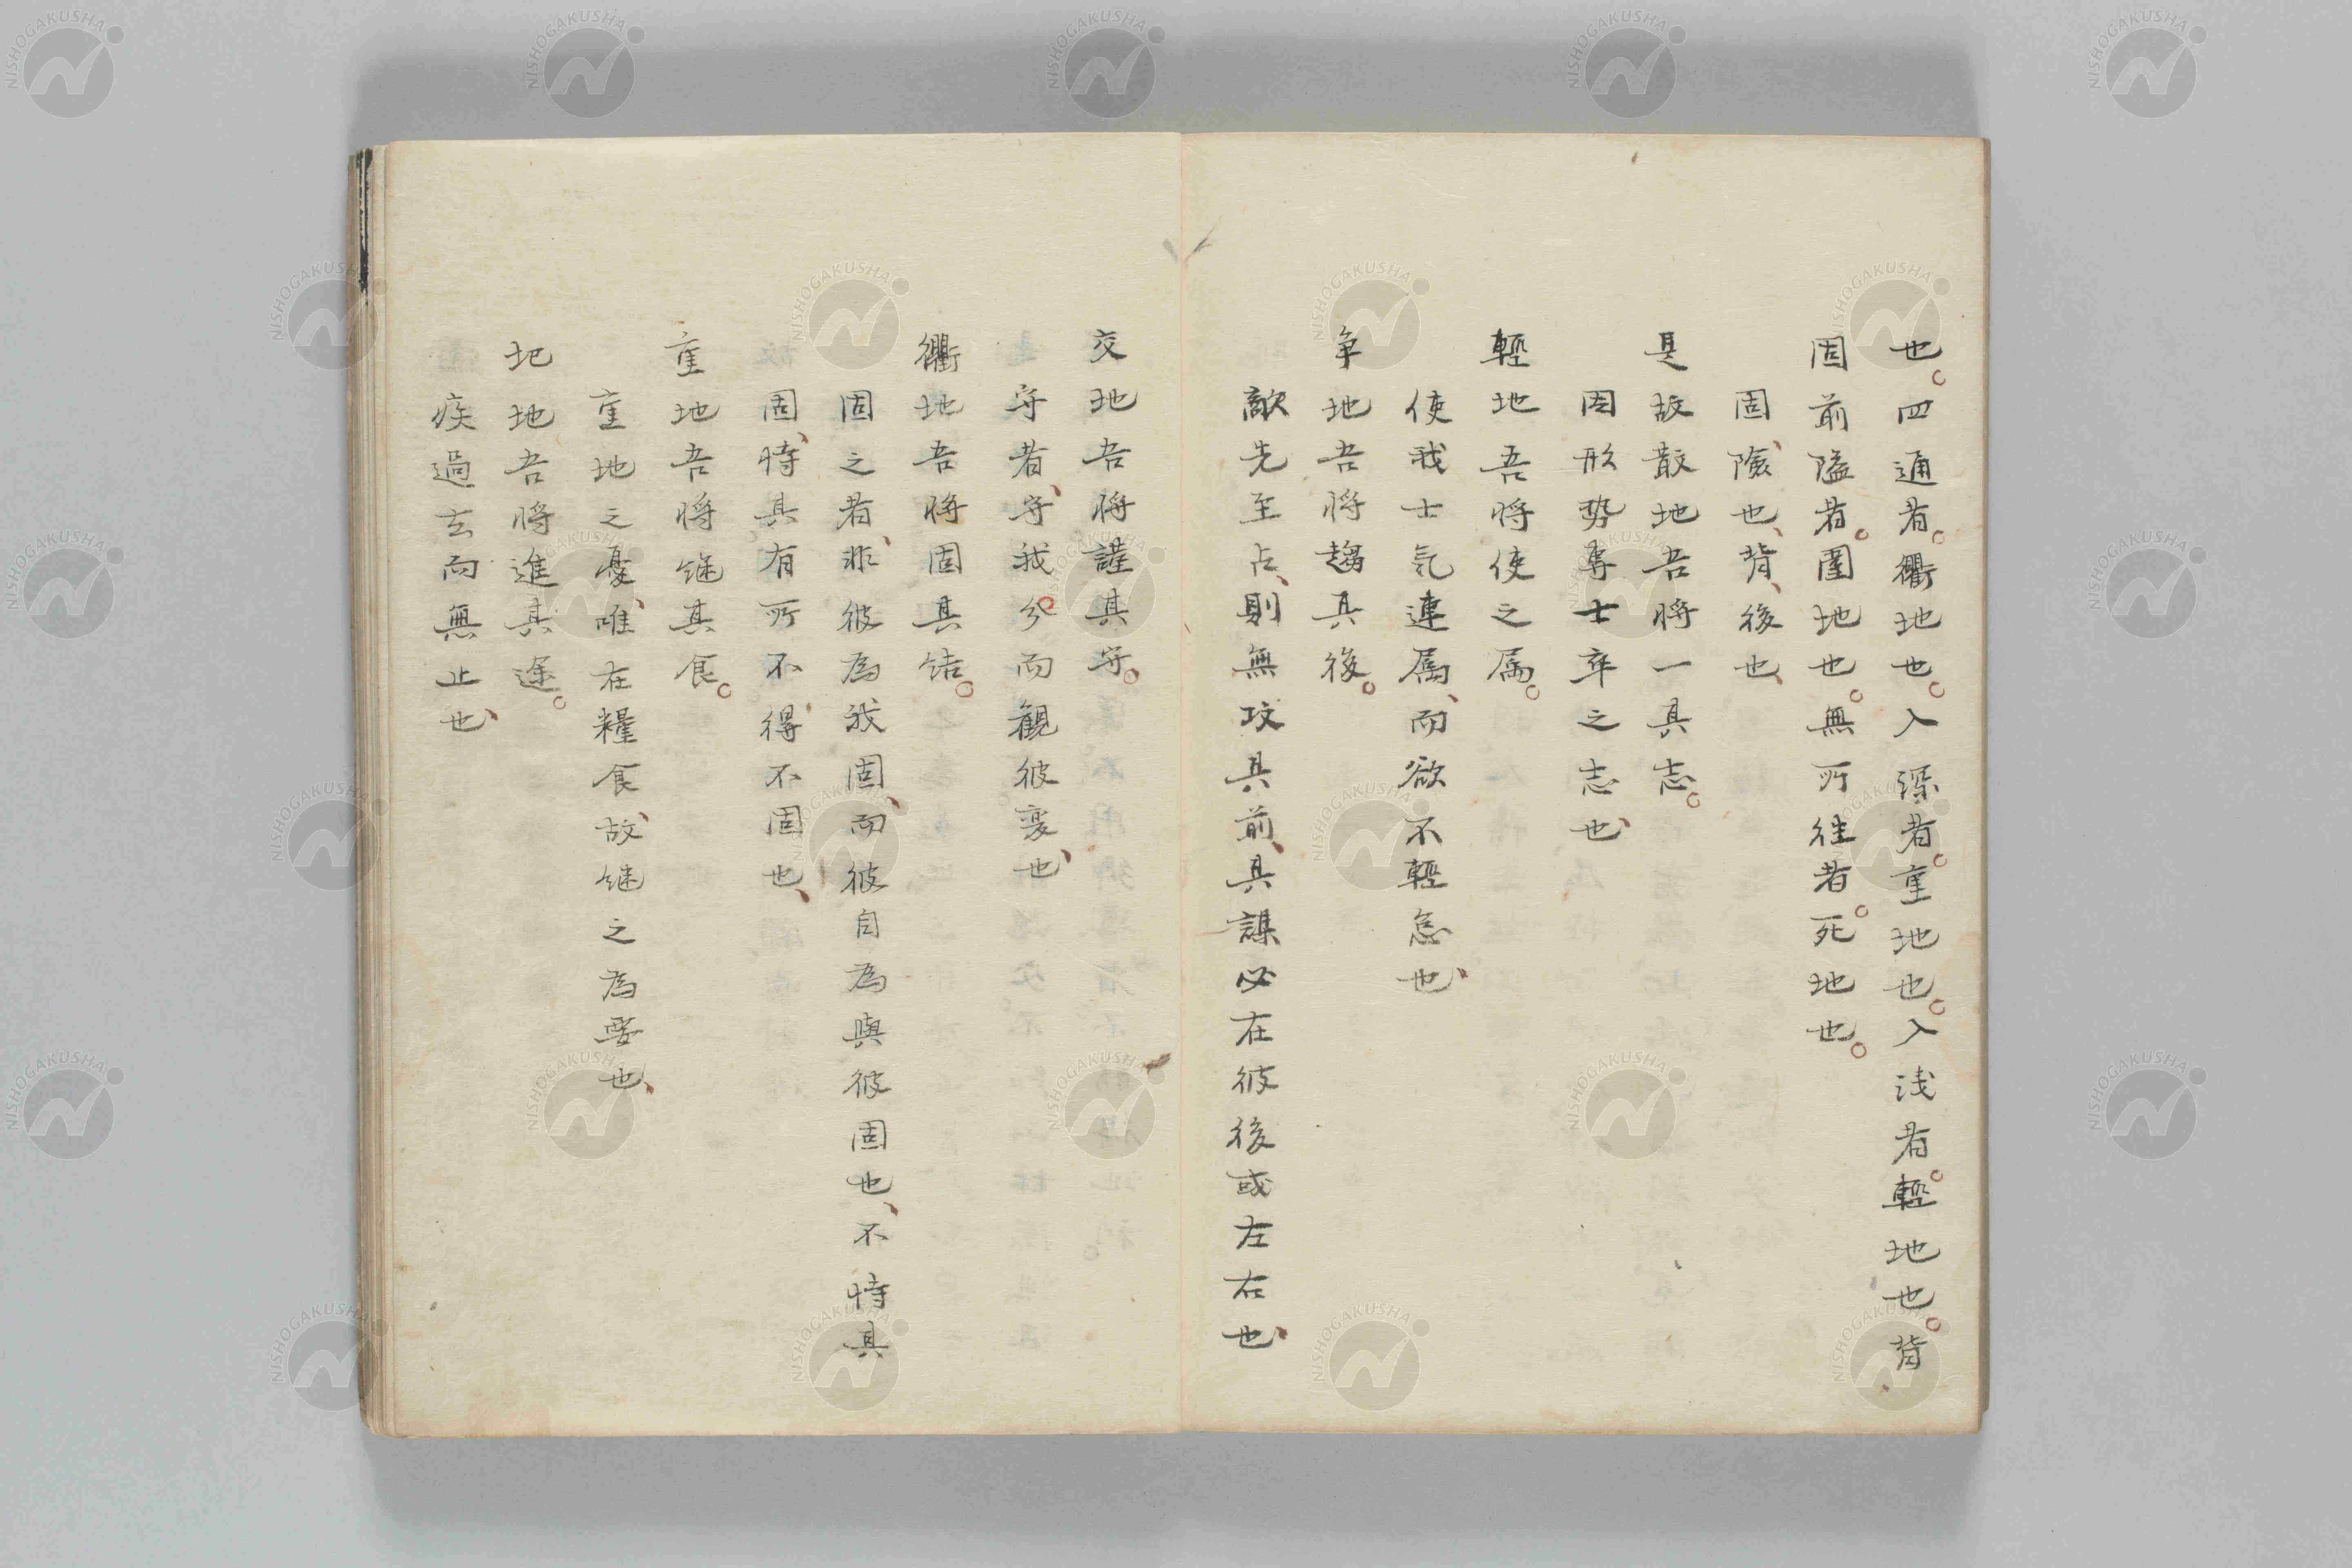 也。四通者。衢地也。入深者。重地也。入浅者。輕地也。背
固前隘者。圍地也。無所往者。死地也。
固、險也、背、後也、
是故散地吾將一其志。
因形勢専士卒之志也、
輕地吾將使之属。
使我士気連属、而欲不輕怠也、
争地吾將趨其後。
敵先至占、則無攻其前、其謀必在彼後或左右也、
交地吾將謹其守。
守者、守我分而観彼変也、
衢地吾將固其結。
固之者、非彼為我固、而彼自為與彼固也、不恃其
固、恃其有所不得不固也、
重地吾將継其食。
重地之憂、唯在糧食、故継之為要也、
圮地吾將進其途。
疾過去而無止也、
NISHOGAKUSHA